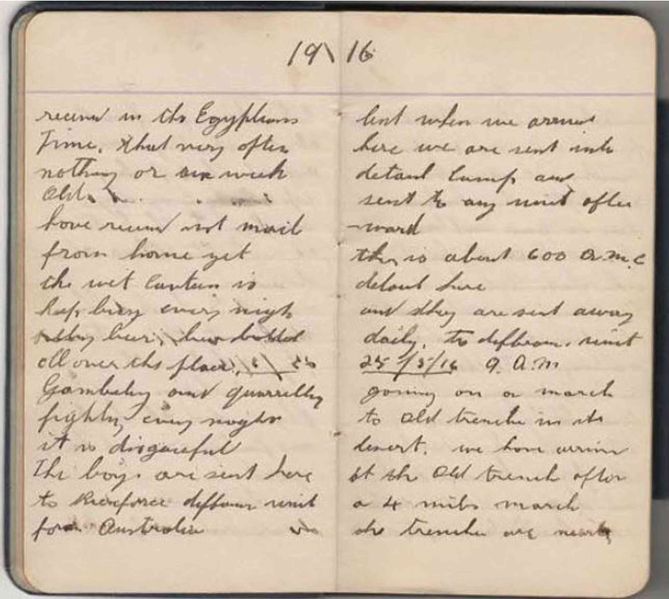 1916
recieve in the Egyptians
Time, that very often
nothing or one week
old.
have recieve not mail
from home yet
the wet Canteen is
kep busy every nigh
beer, beer bottel
all over the place,
Gambeling and quarrelling
fighting every night
it is disgraceful
The boys are sent here
to Reinforce diffrent unit
from Australia
but when we arrived
here we are sent into
detail Camp and
sent to any unit after
-ward
this is about 600 A.M.C
detail here
and they are sent away
daily, to diffrent unit
25/5/16 9. A.M
going on a march
to old trenche in the
desert. we have arrive
at the old trench after
a 4 mile march
the trenche are nearly